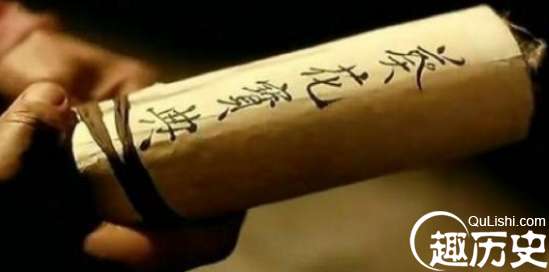 葵花寳典
QuLishi.com
趣历史